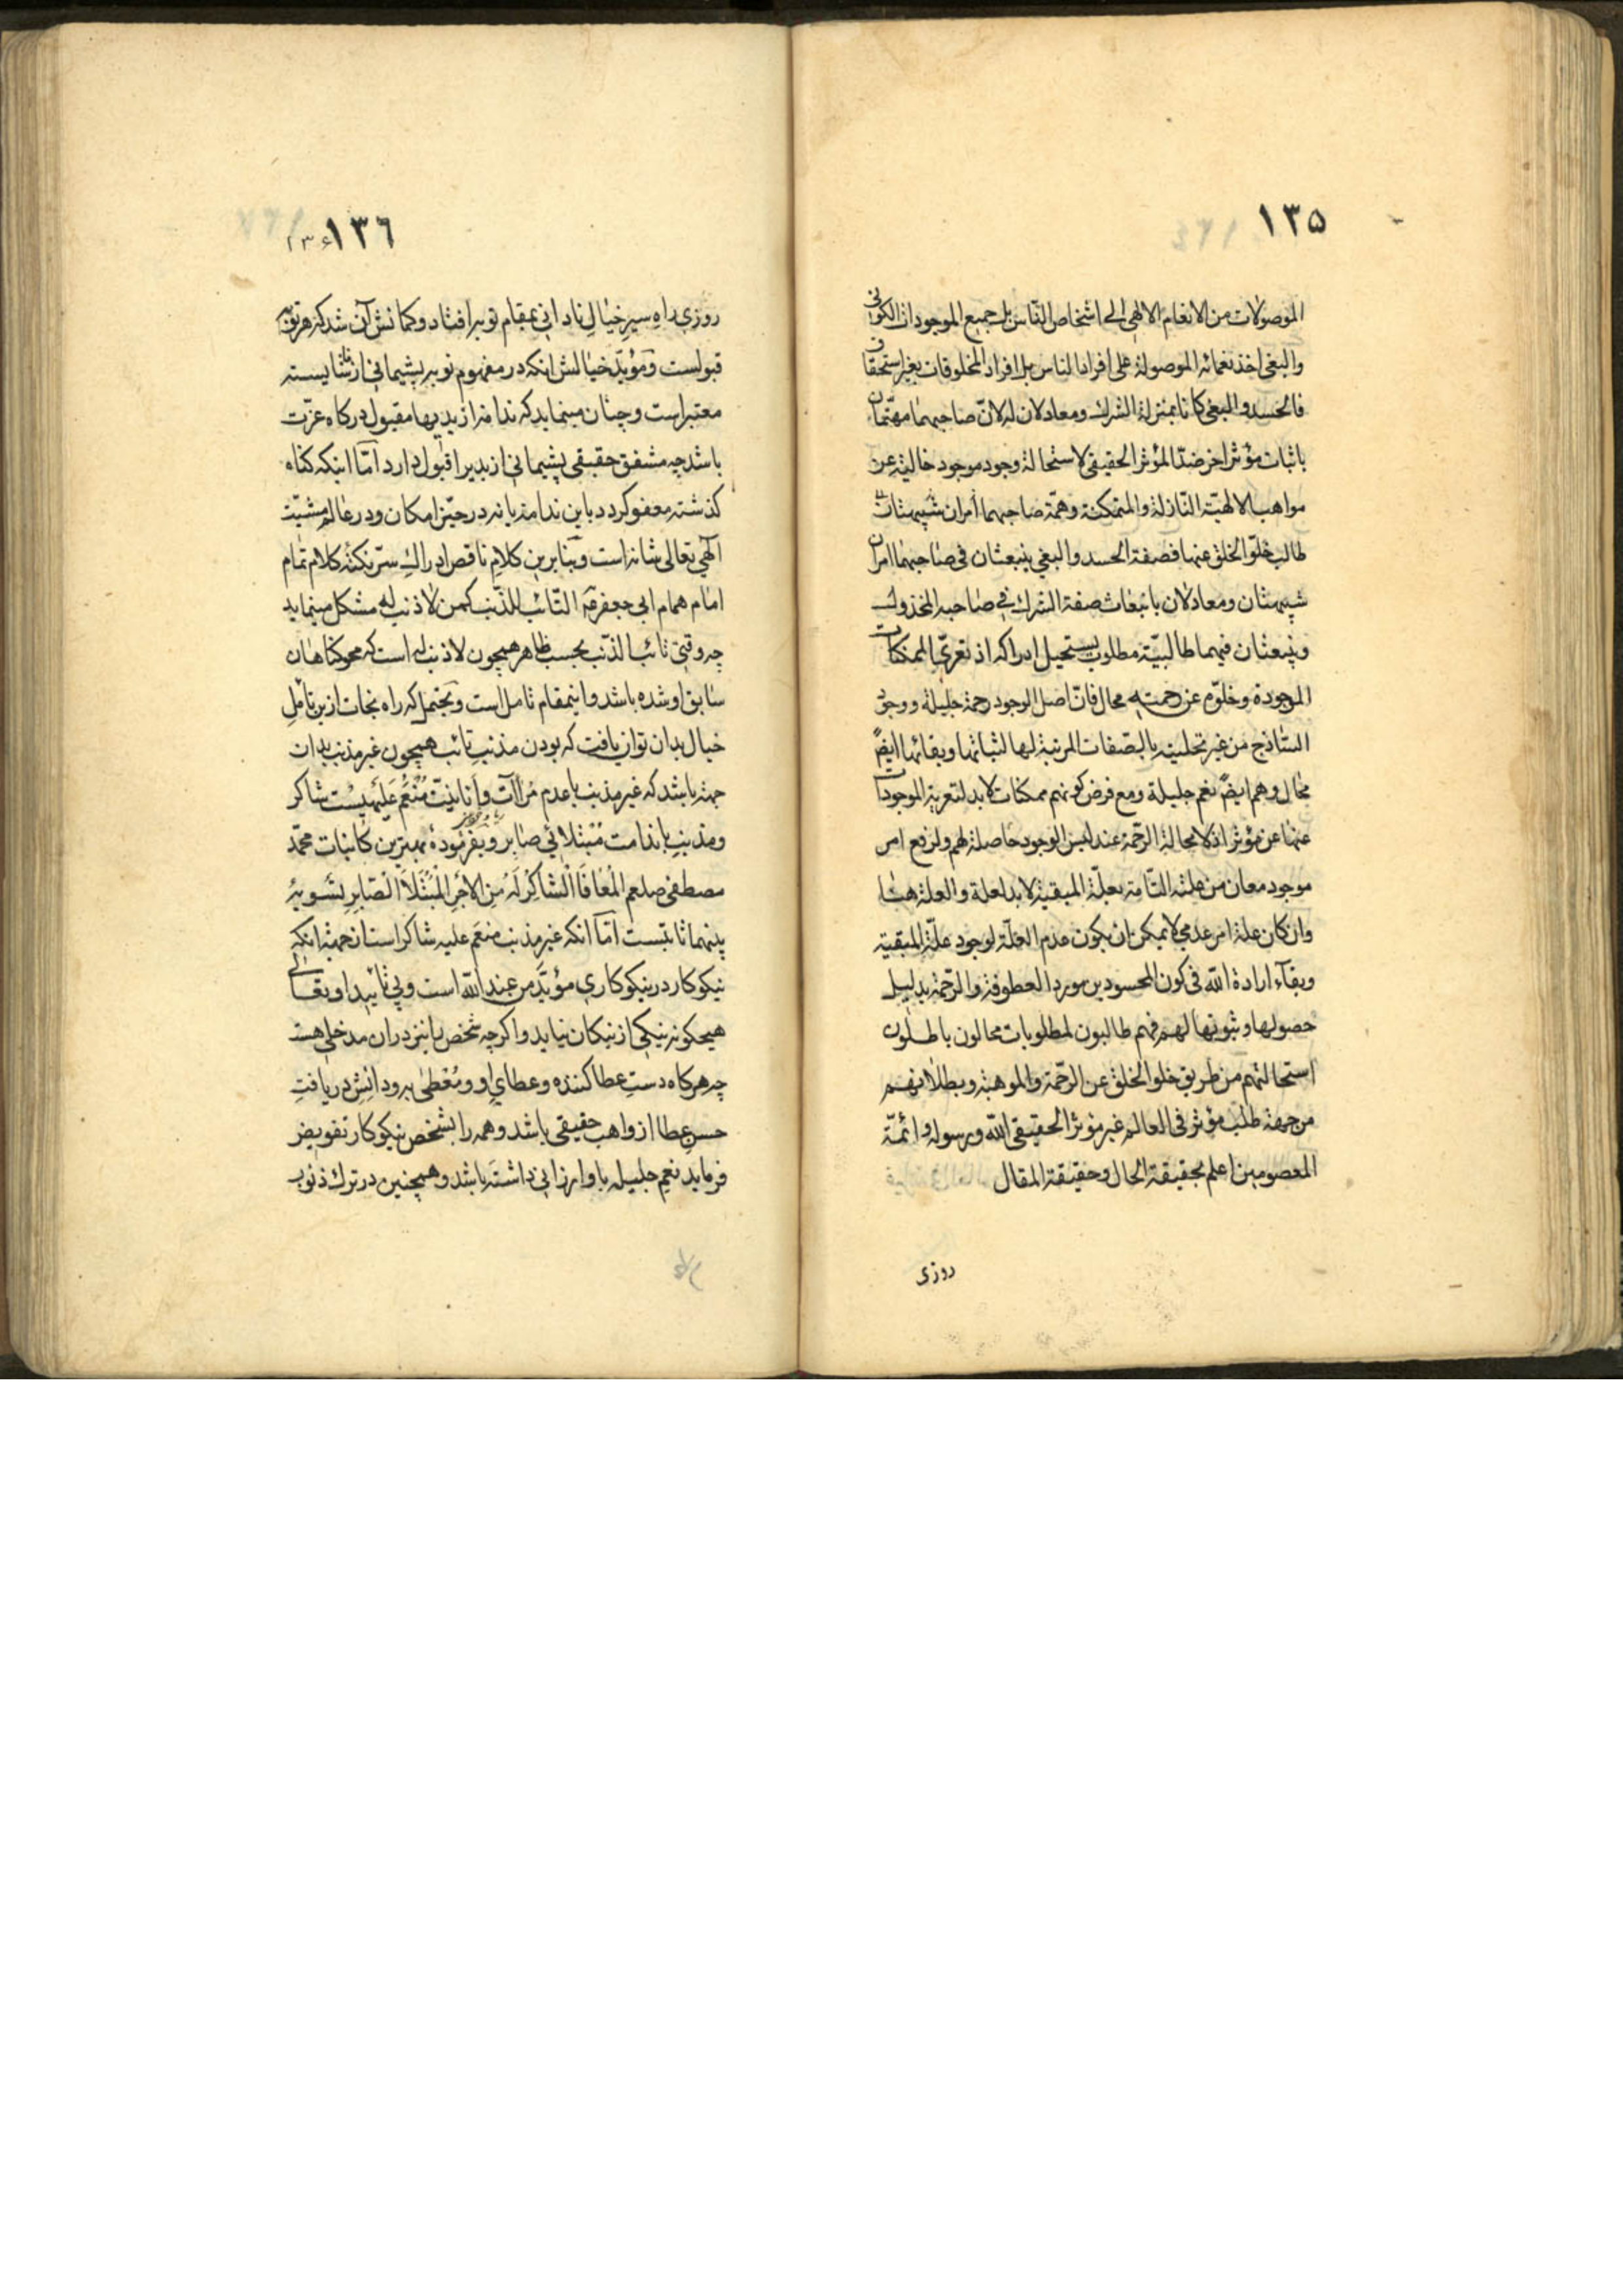 ١٣٥
الموصولات من الانعام الالهی الی اشخاص الناس بل جمیع الموجودات الکونی
والبغی اخذ نعمائه الموصولة علی افراد الناس بل افراد المخلوقات بغیر استحقاق
فالحسد والبغی کانا بمنزلة الشرك ومعادلان له لانّ صاحبهما مهتمان
باثبات مؤثر اخر ضدّ المؤثر الحقیقی لاستحالة وجود موجود خالیة عن
مواهب الالهیّة النّازلة والمتمکنة وهمّة صاحبهما امران شبیهتان
طالب خلوّ الخلق عنها فصفة الحسد والبغی ینبعثان فی صاحبهما امران
شبیهتان ومعادلان بانبعاث صفة الشرك فی صاحبه المخذول
وینبعثان فیهما طالبیّة مطلوب یستحیل ادراکه اذ تعرّی الممکنات
الموجودة وخلوّهم عن رحمته محال فانّ اصل الوجود رحمة جلیلة ووجود
السّاذج من غیر تحلیته بالصّفات المرتبة لها لثباتها وبقائها ایضً
محال وهم ایضً نعم جلیلة ومع فرض کونهم ممکنات لابد لتعریة الموجودات
عنها عن مؤثر اذ لامحالة الرّحمة عند لبس الوجود حاصلة لهم ولرفع امر
موجود معان من علته التّامة بعلّة المبقیة لابد لعلة والعلة هنا
وان کان علة امر عدمی لایمکن ان یکون عدم العلّة لوجود علّة المبقیة
وبقآء ارادة اللّه فی کون المحسودین مورد العطوفة والرّحمة بدلیل
حصولها وثبوتها لهم فهم طالبون لمطلوبات محالون باطلون
استحالتهم من طریق خلو الخلق عن الرّحمة والموهبة وبطلانهم
من جهة طلب مؤثر فی العالم غیر مؤثر الحقیقی اللّه ورسوله وائمّة
المعصومین اعلم بحقیقة الحال وحقیقة المقال
روزی
١٣٦ ۱۳۶
روزی راه سیرِ خیالِ نادانی بمقام توبه افتاد وکمانش آن شد که هر توبه
قبولست ومؤیّد خیالش انکه در مفهوم توبه پشیمانی از ناشایسته
معتبر است وچنان مینماید که ندامة از بدیها مقبول درکاه عزّت
باشد چه مشفق حقیقی پشیمانی از بدیرا قبول دارد امّا اینکه کناه
کذشته معفو کردد باین ندامة یا نه در حیّز امکان ودر عالمِ مشیّت
الهی تعالی شانه است وبنا برین کلامِ ناقص ادراكِ سرّ نکتهٔ کلام تمام
امام همام ابی جعفر التّائب للذّنب کمن لا ذنب له مشکل مینماید
چه وقتی تائب الذّنب بحسب ظاهر همچون لاذنب له است که محو کناهان
سابق او شده باشد واینمقام تامل است ویحتمل که راه نجات ازین تأملِ
خیال بدان توان یافت که بودن مذنبِ تائب همچون غیر مذنب بدان
جهة باشد که غیر مذنب با عدم مُنعَم عَلَیْهِیْست شاکر
ومذنبِ با ندامت مُبْتَلائی صابر وبفرمُودهٔ بهترین کائنات محمّد
مصطفی صلعم الْمُعَافَا الْشَاکِرُ لَهُ مِنَ الاَجْرِ الْمُبْتَلاَ الْصّابِرِ تسویهٔ
بینهما ثابتست امّا انکه غیر مذنب منعم علیه شاکر است از جهة انکه
نیکوکار در نیکوکاری مؤیَّد من عند اللّه است وبی تائید او تعالی
هیچکونه نیکی از نیکان نیاید واکرچه شخص را نیز دران مدخلی هست
چه هرکاه دستِ عطا کننده وعطایِ او ومُعْطیٰ به ودانشِ دریافتِ
حسنِ عطا از واهب حقیقی باشد وهمه را بشخص نیکوکار تفویض
فرماید نعمِ جلیله باو ارزانی داشته باشد وهمچنین در ترك ذنوب